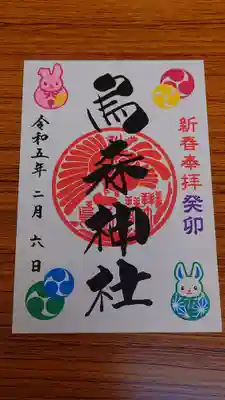 新春奉拝 癸卯
烏森神社
令和五年 二月 六日